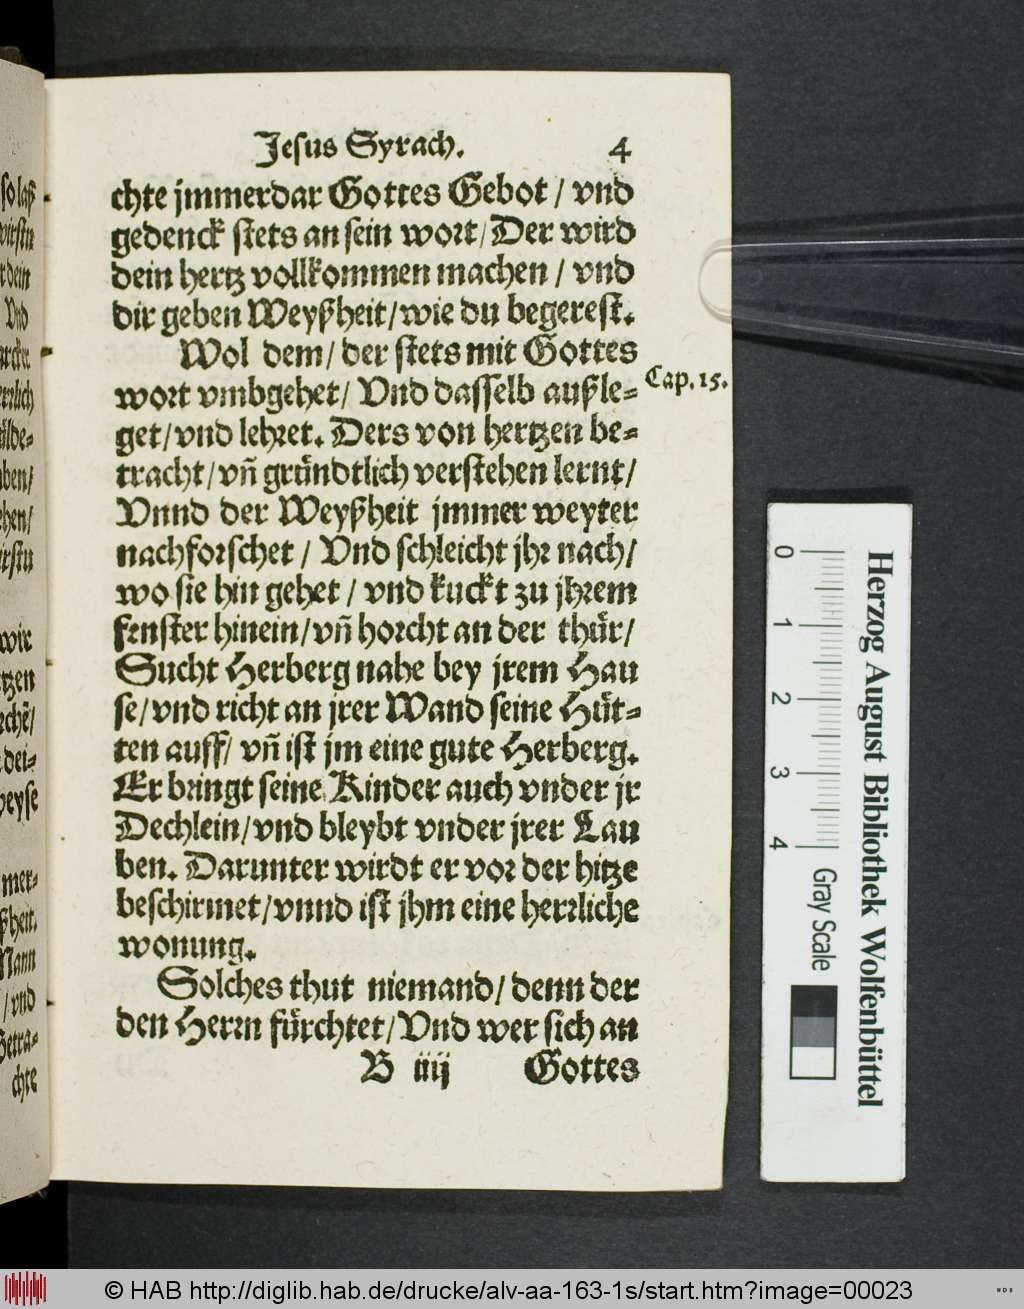 Jesus Syrach. 4
chte jmmerdar Gottes Gebot / vnd
gedenck stets an sein wort/ Der wird
dein hertz vollkommen machen / vnd
dir geben Weyßheit/wie du begerest.
Wol dem/ der stets mit Gottes
wort vmbgehet/ Vnd dasselb außle=
Cap. 15.
get/vnd lehret. Ders von hertzen be=
tracht/vñ gründtlich verstehen lernt/
Vnnd der Weyßheit jmmer weyter
nachforschet / Vnd schleicht jhr nach/
wo sie hin gehet / vnd kuckt zu jhrem
fenster hinein/vñ horcht an der thür/
Sucht Herberg nahe bey jrem Hau
se/vnd richt an jrer Wand seine Hüt=
ten auff/ vñ ist jm eine gute Herberg.
Er bringt seine Kinder auch vnder jr
Dechlein/vnd bleybt vnder jrer Lau
ben. Darunter wirdt er vor der hitze
beschirmet/vnnd ist jhm eine herrliche
wonung.
Solches thut niemand/ denn der
den Herrn fürchtet/Vnd wer sich an
B iiij Gottes
so laß
wirstu
dein
Vnd
=
ben/
hen/
wir
tzen
dei=
weyse
mer=
ßheit.
Mann
/vnd
Getra=
chte
0 1 2 3 4
Gray Scale
Herzog August Bibliothek Wolfenbüttel
© HAB http://diglib.hab.de/drucke/alv-aa-163-1s/start.htm?image=00023